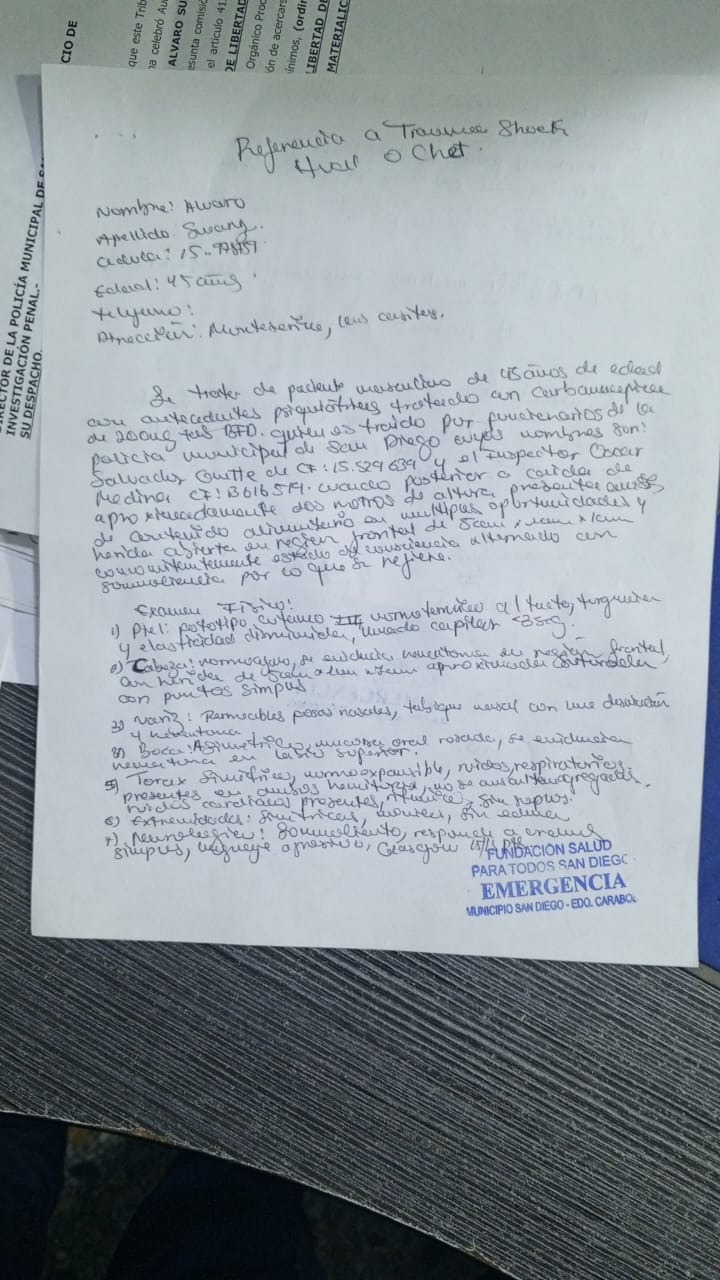 CIO DE
que este Trib
na celebró Au
ALVARO SU
esunta comisió
el artículo 41
DE LIBERTAD
Orgánico Proc
ón de acercars
nimos, (ordin
LIBERTAD DE
MATERIALIC
DIRECTOR DE LA POLICÍA MUNICIPAL DE SA
INVESTIGACIÓN PENAL.-
SU DESPACHO.
Referencia a Trauma Shock
o Chet.
Nombre: Alvaro
Apellido Suarez.
Cedula: 15.
Edad: 45 años.
Telefono:
Dirección: Monteserino, las casitas.
Se trata de paciente masculino de 45 años de edad
con antecedentes psiquiátricos tratado con Carbamazepina
de 200mg quien es traido por funcionarios de la
policia municipal de San Diego cuyos nombres son:
Salvador de CI: 15.529639 y el Inspector Oscar
Medina CI: 13616574. cuando posterior a caida de
aproximadamente dos metros de altura presenta
de contenido alimentario en multiples oportunidades y
herida abierta en region frontal de 5cm x 1cm x 1cm
concomitantemente estado de consciencia alternado con
somnolencia por lo que se refiere.
Examen Fisico:
1) Piel: fototipo cutaneo III normotermico al tacto, turgencia
y elasticidad disminuida, llenado capilar 3seg.
2) Cabeza: normocefalo, se evidencia hematoma en región frontal,
con herida de aproximadamente suturada
con puntos simples
3) Nariz: Permeables fosas nasales, tabique nasal con
y hematoma
4) Boca: Asimetrica, mucosa oral rosada, se evidencia
hematoma en labio superior.
5) Torax simétrico, normoexpansible, ruidos respiratorios
presentes en ambos hemitorax, no se auscultan agregados.
ruidos cardiacos presentes, ritmicos, sin soplos.
6) Extremidades: Simétricas, moviles, sin edema
7) Neurologico: Somnoliento, responde a
simples, lenguaje Glasgow
FUNDACIÓN SALUD
PARA TODOS SAN DIEGO
EMERGENCIA
MUNICIPIO SAN DIEGO - EDO. CARABOB